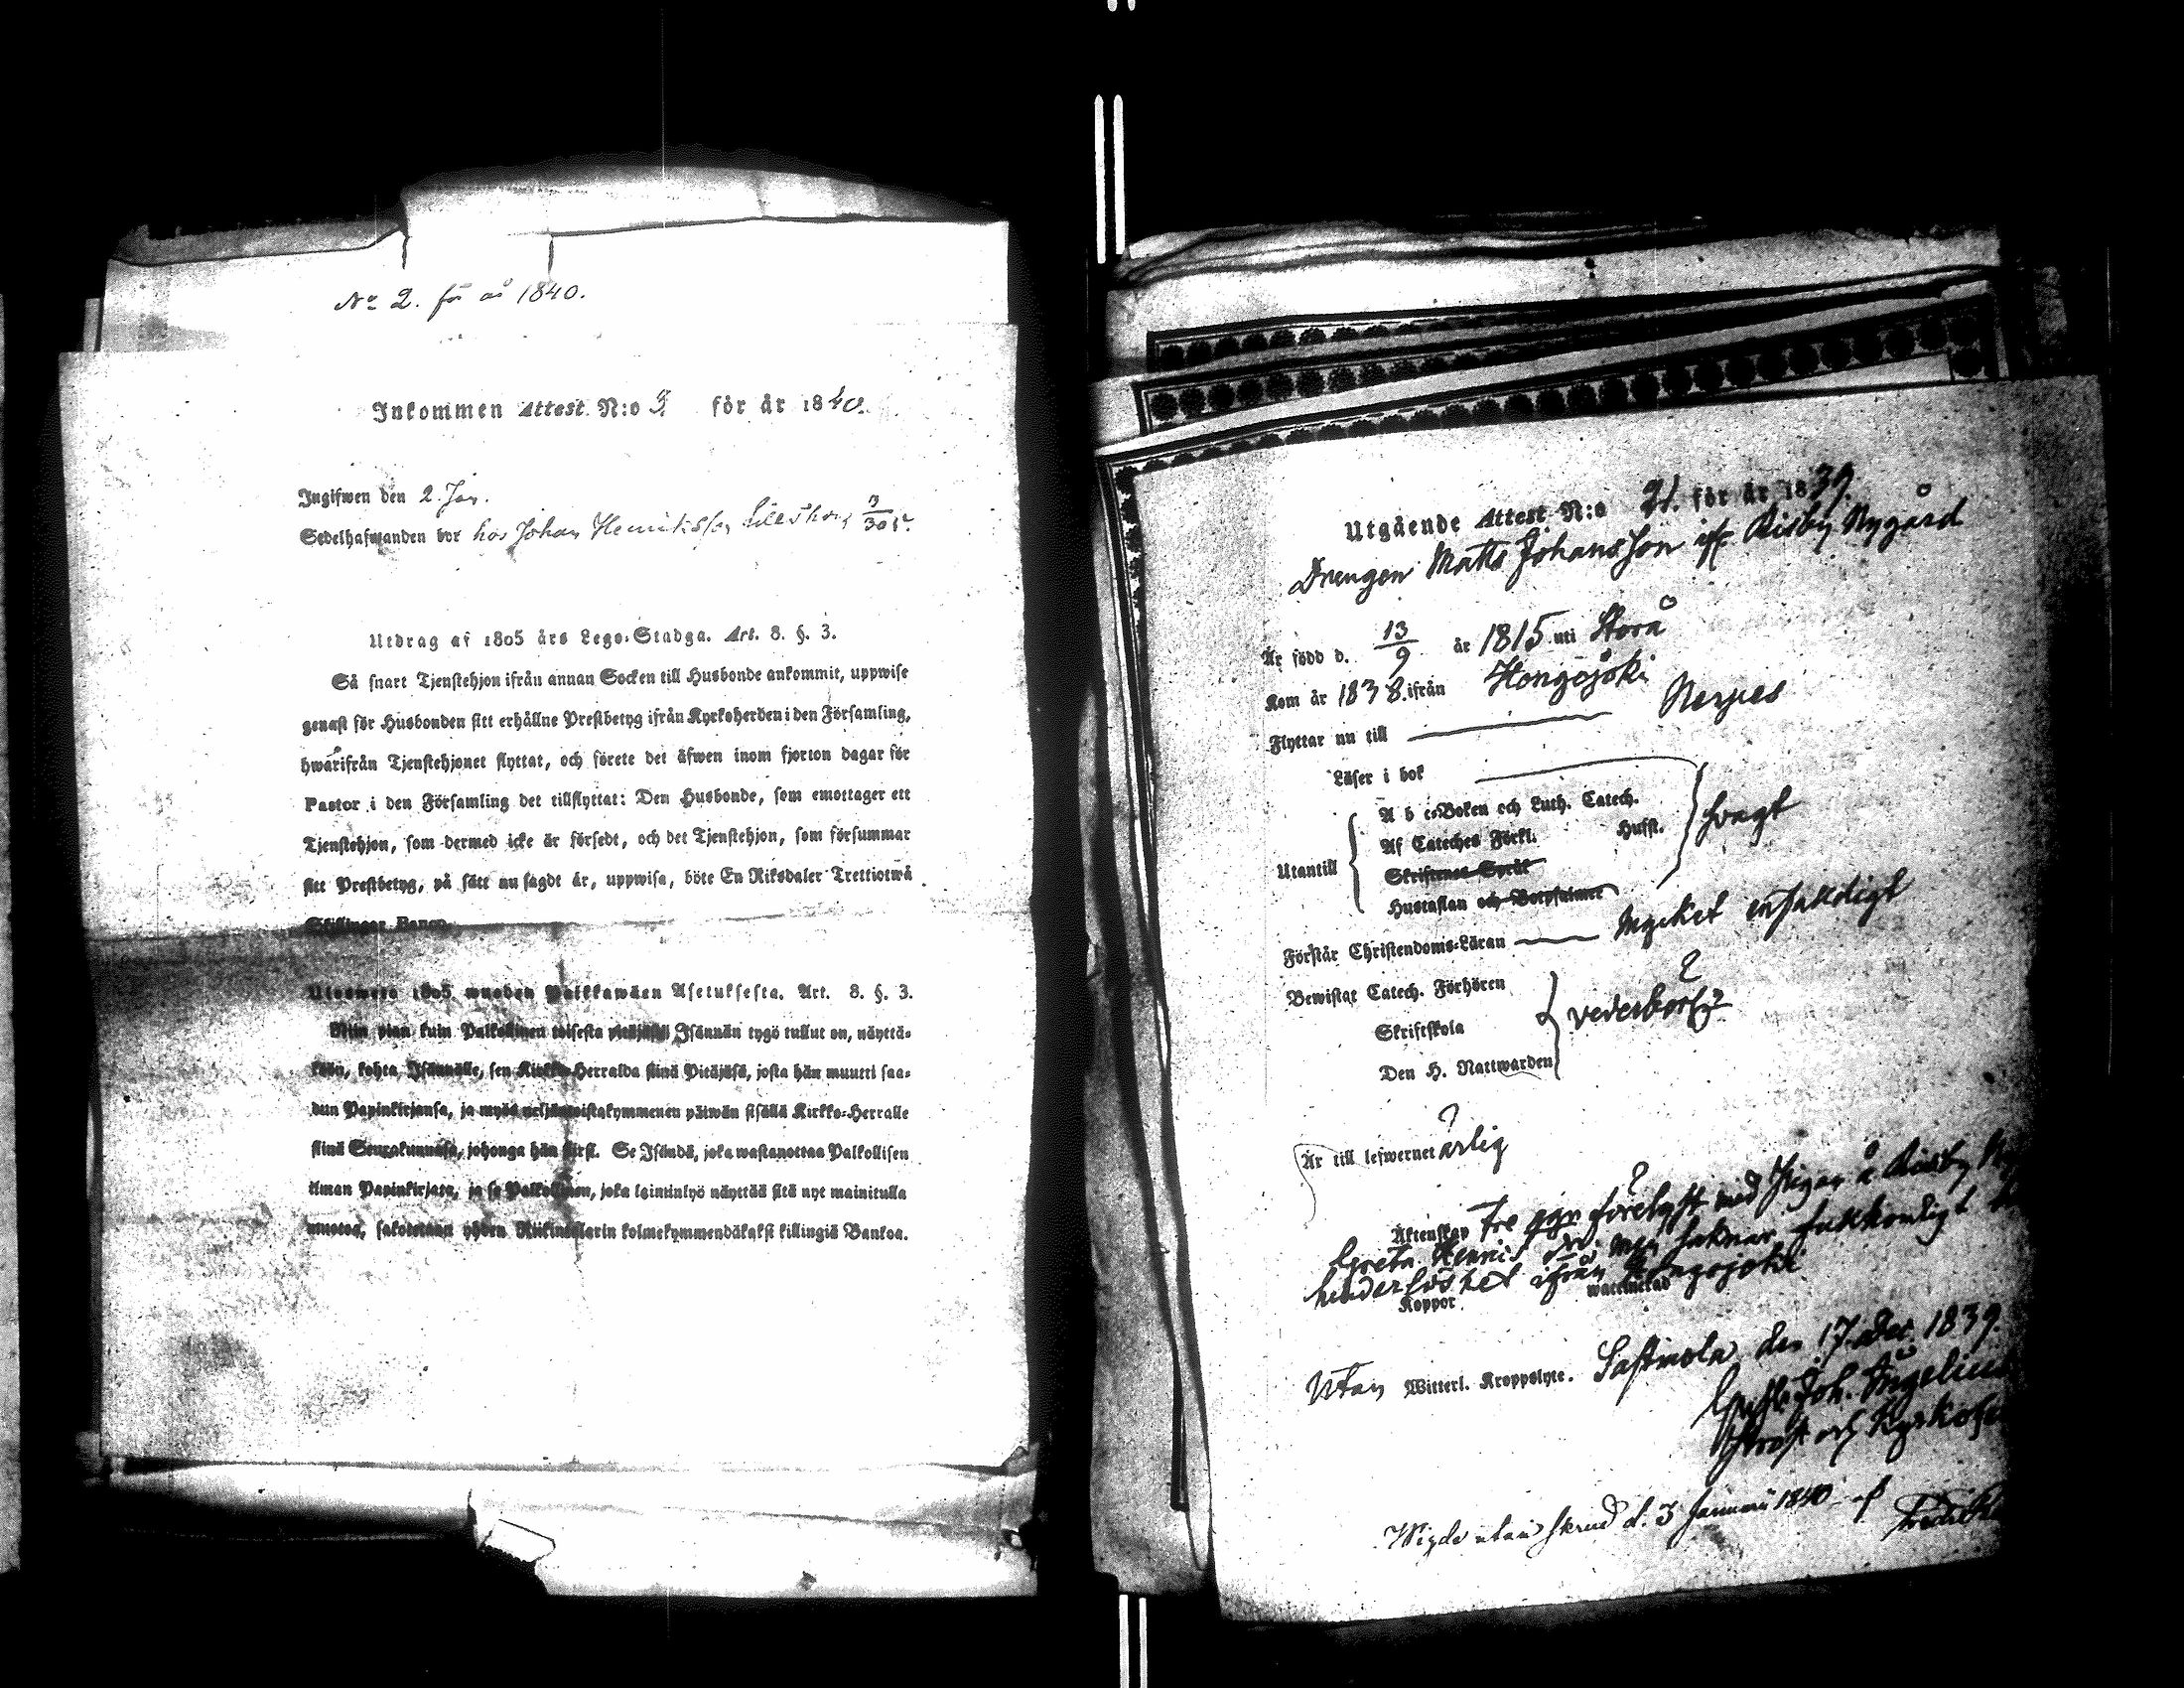 No 2. för år 1840.
Inkommen Attest N:o 3. för år 1840.
Ingifwen den 2. Jan.
Sedelhafwanden bor hos Johan Henriksson Lillsthor 3/30
Utdrag af 1805 års Lego-Stadga. Art. 8. §. 3.
Så snart Tjenstehjon ifrån annan Socken till Husbonde ankommit, uppwise
genast för Husbonden sitt erhållne Prestbetyg ifrån Kyrkoherden i den Församling,
hwarifrån Tjenstehjonet flyttat, och förete det äfwen inom fjorton dagar för
Pastor i den Församling det tillflyttat: Den Husbonde, som emottager ett
Tjenstehjon, som dermed icke är försedt, och det Tjenstehjon, som försummar
sitt Prestbetyg, på sätt nu sagdt är, uppwisa, böte En Riksdaler Trettiotwå
Skillingar Banco.
Uloswero 1805 wuoden Palkkawäen Asetuksesta. Art. 8. §. 3.
Niin pian kuin Palkollinen toisesta pitäjästä Isännän tygö tullut on, näyttä-
köön, kohta Isännälle, sen Kirkko-Herralda siinä Pitäjäsä, josta hän muutti saa-
dun Papinkirjansa, ja myös neljäntoistakymmenen päiwän sisällä Kirkko-Herralle
siinä Seurakunnasa, johonga hän siirsi. Se Isändä, joka wastanottaa Palkollisen
ilman Papinkirjata, ja se Palkollinen, joka laiminlyö näyttää sitä nyt mainitulla
muotoa, sakotetaan yhden Riikintalarin kolmekymmendäkaksi killingiä Bankoa.
Utgående Attest N:o 21. för år 1839.
Drengen Matts Johansson ifr Risby Nygård
Är född d. 13/9 år 1815 uti Storå
Kom år 1838. ifrån Hongojoki
Flyttar nu till Nerpes
Läser i bok
Utantill
A b c-Boken och Luth. Catech.
Af Cateches Förkl. Husft.
Skriftenes Språk
Hustaflan och Botpsalmer
svagt
Förstår Christendoms-Läran Mycket enfaldigt
Bewistat Catech. Förhören
Skriftskola
Den H. Nattwarden
vederbörl.
Är till lefwernet ärlig
Äktenskap Tre ggr förelyst med Pigan å Risby
Greta Henrics dr. men saknar fullkomligt
hinderlöshet ifrån Hongojoki
Koppor waccinerad
Utan Witterl. Kroppslyte. Lastmola den 17 Dec. 1839.
Joh. Ångelius
Prost och Kyrkoh
Wigde utan skrud d. 3 Januari 1840 af